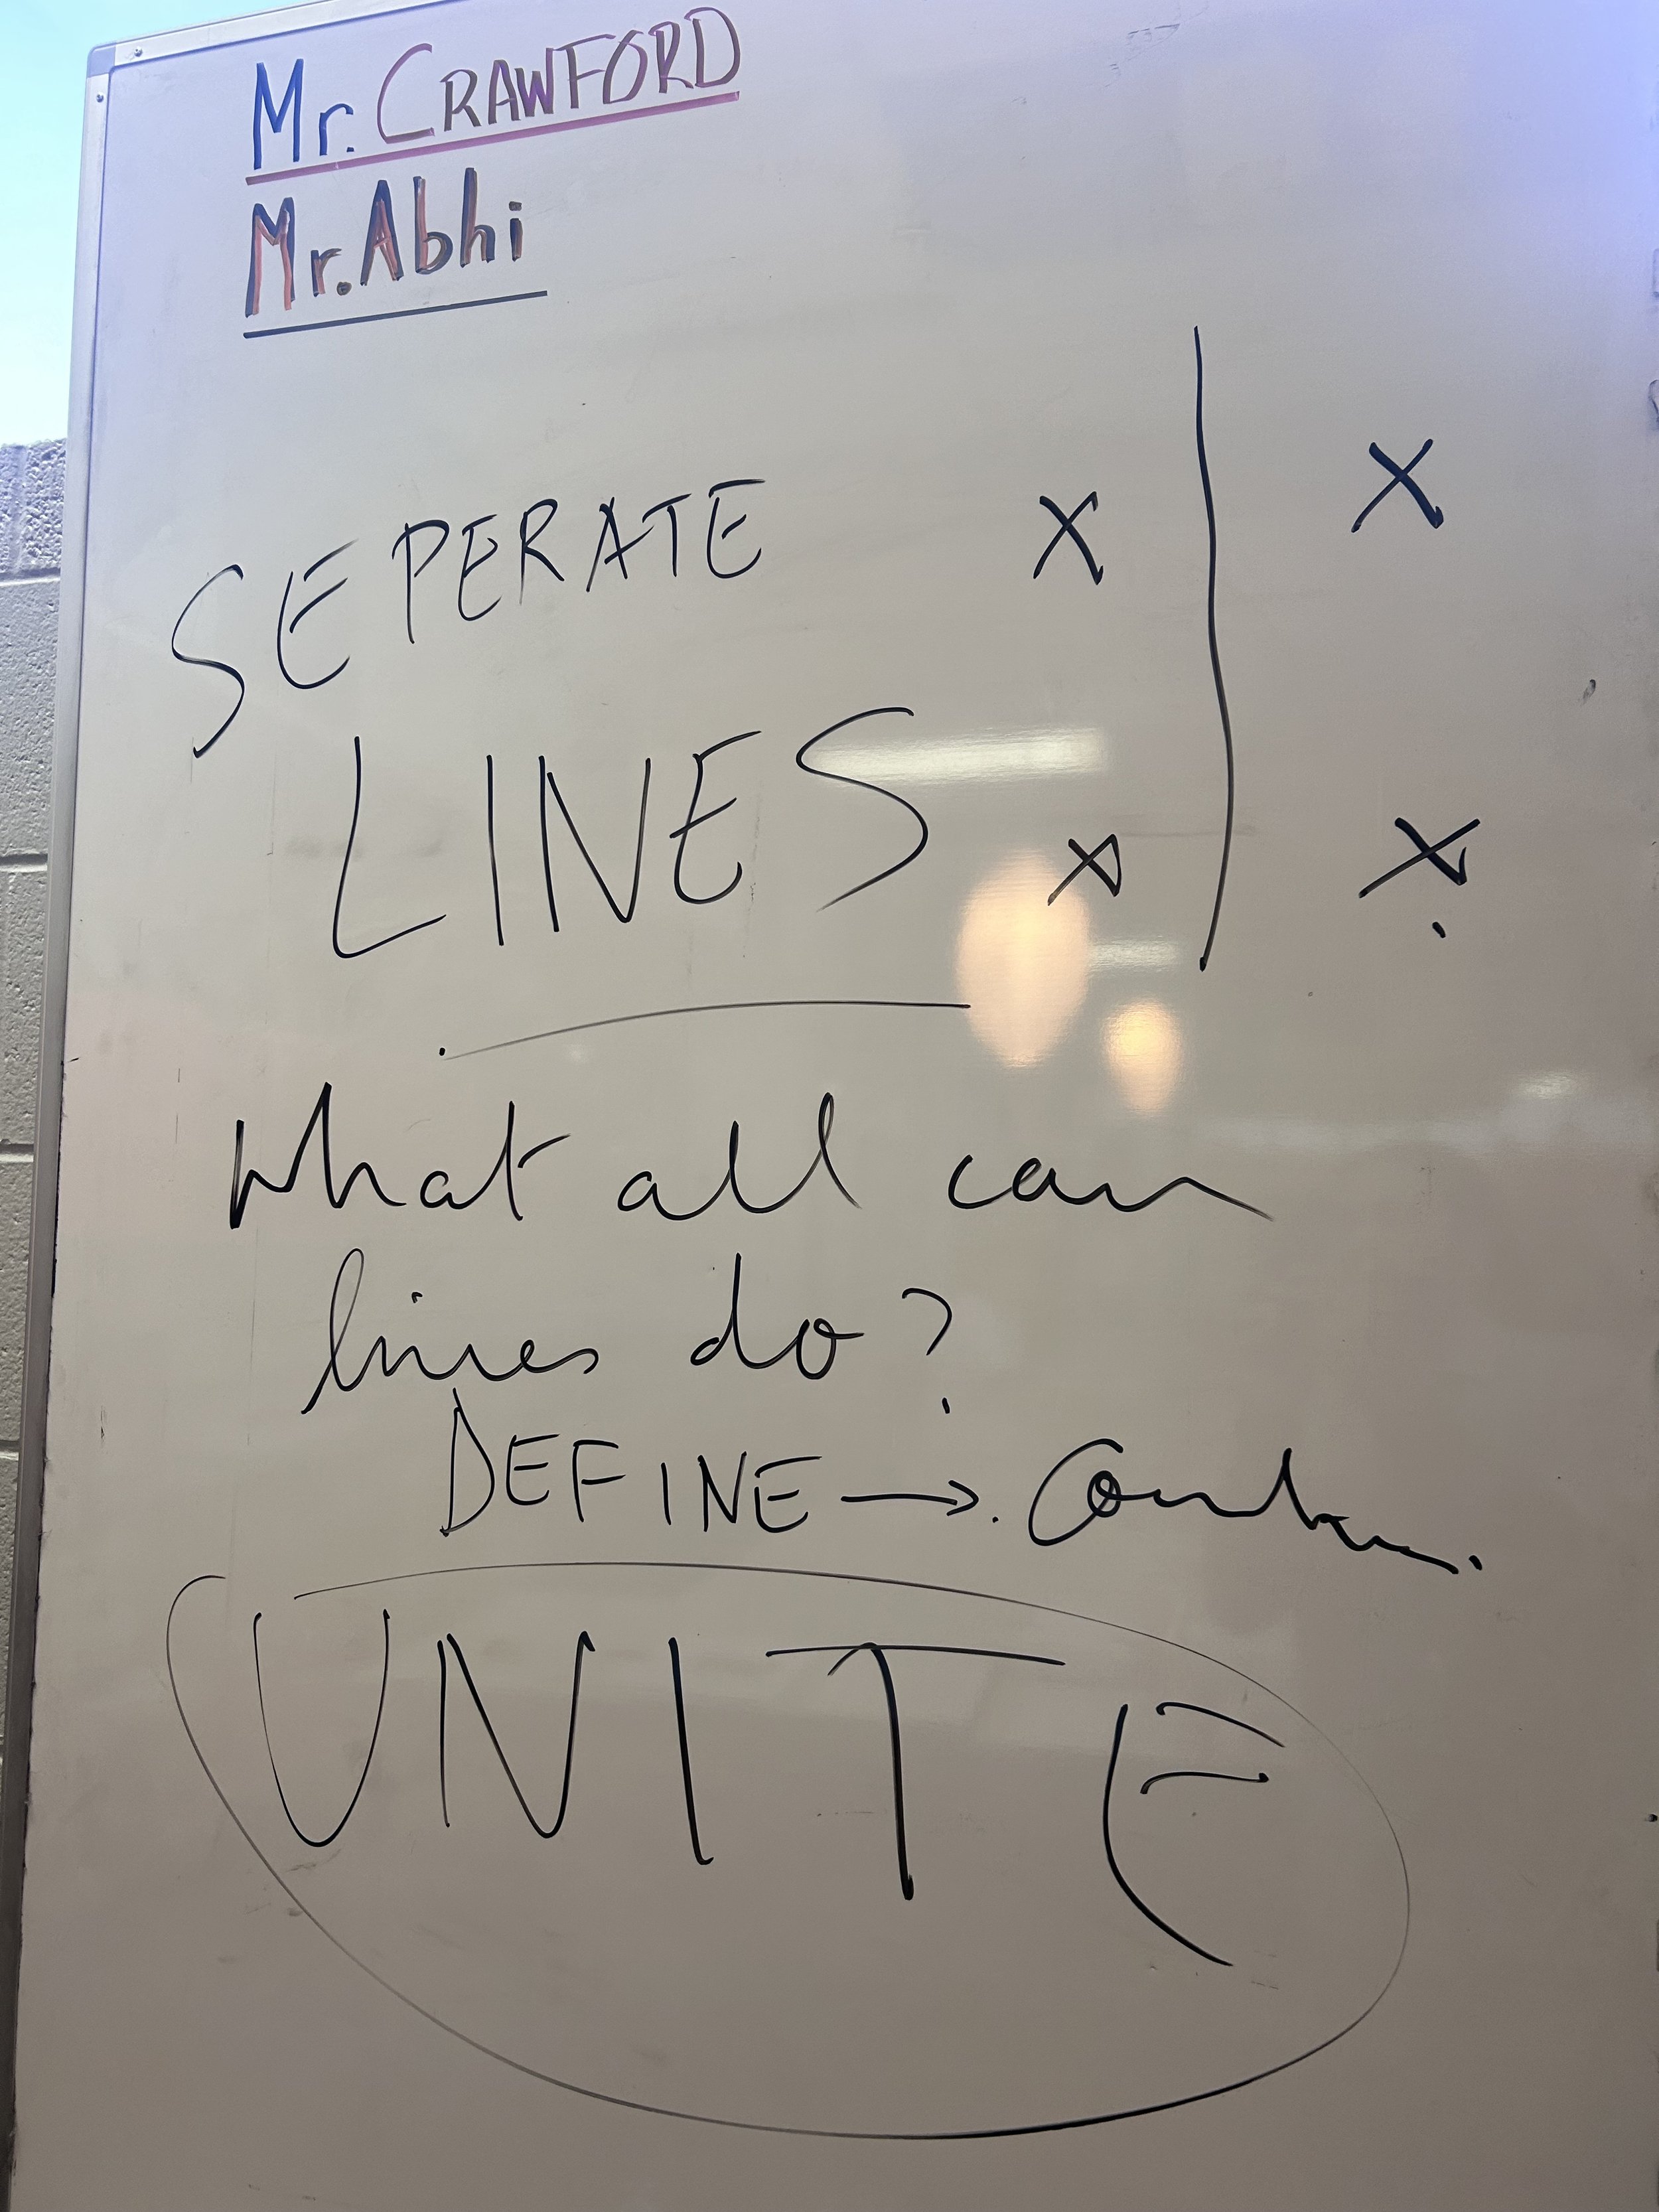 Mr. CRAWFORD
Mr. Abhi
SEPERATE
X X
LINES
X X
What all can
lines do?
DEFINE →
UNITE